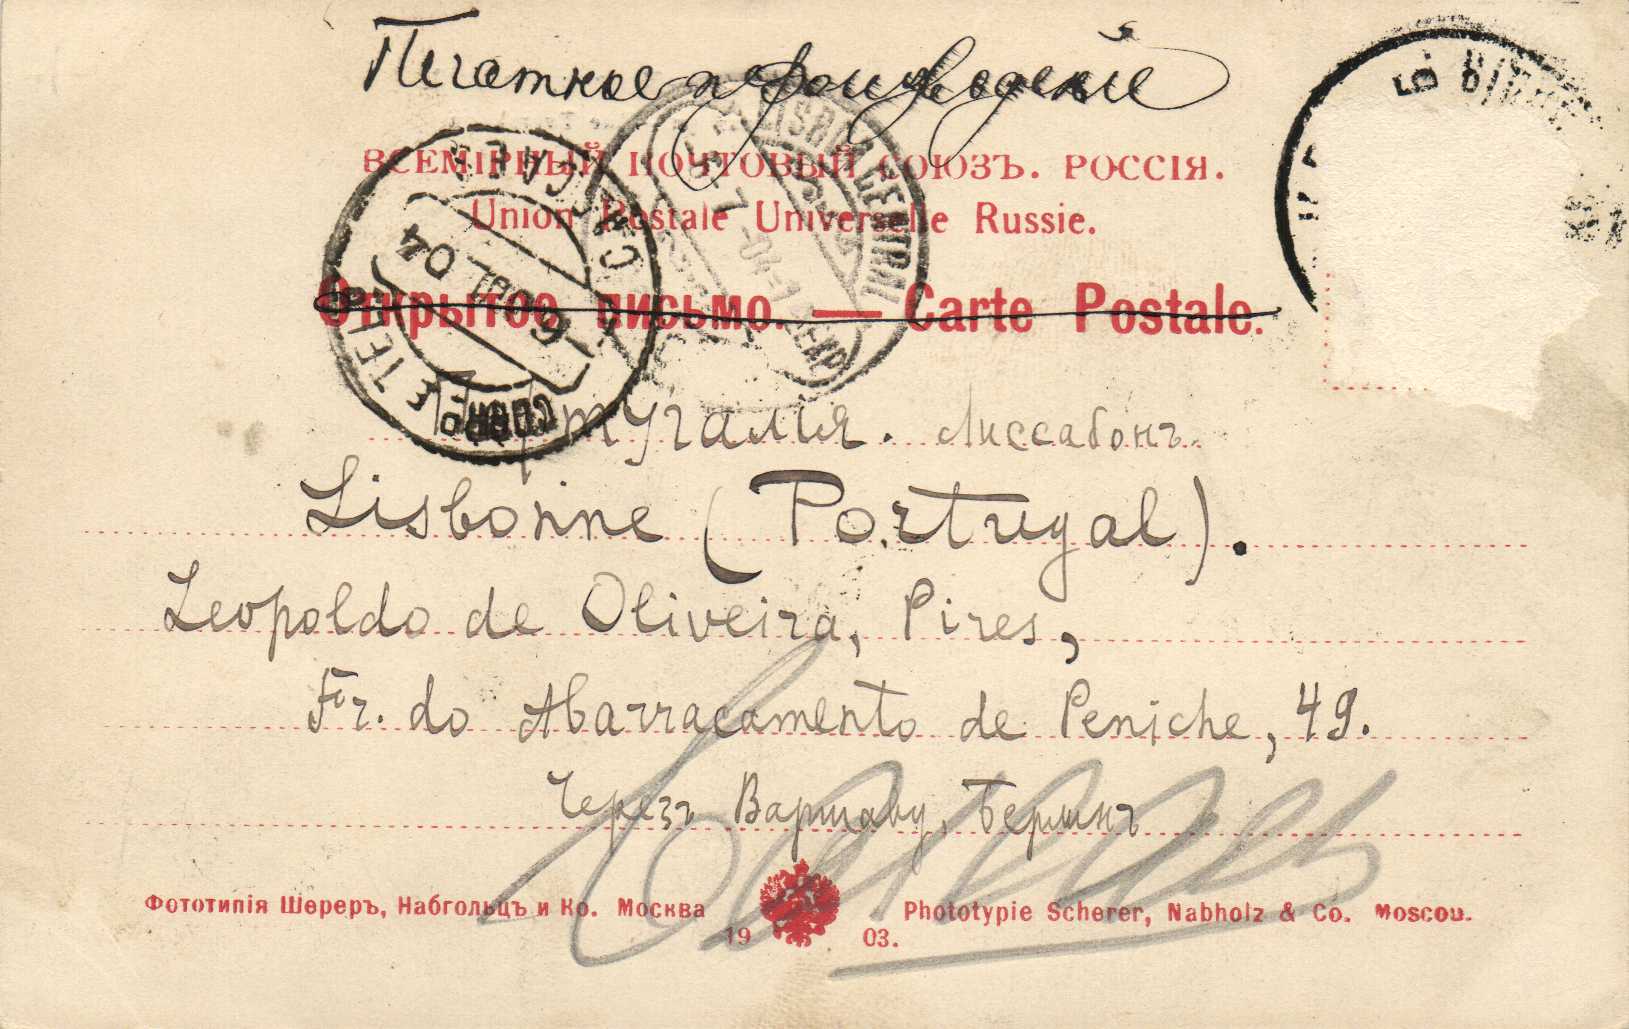 Печатное произведенiе
ВСЕМІРНЫЙ ПОЧТОВЫЙ СОЮЗЪ. РОССІЯ.
Union Postale Universelle Russie.
Открытое письмо. — Carte Postale.
LISBOA CENTRAL
CASCAES
6 JUL 04
CORRO E TELEG
тугалия. Лиссабонъ.
Lisbonne (Portugal).
Leopoldo de Oliveira, Pires,
Fr. do Abarracamento de Peniche, 49.
Черезъ Варшаву, Берлинъ
Фототипія Шереръ, Набгольцъ и Ко. Москва
Phototypie Scherer, Nabholz & Co. Moscou.
19 03.